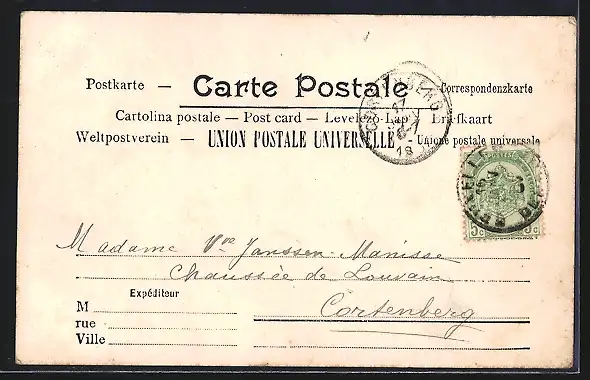 Postkarte — Carte Postale — Correspondenzkarte
Cartolina postale — Post card — Levelező-Lap — Briefkaart
Weltpostverein — UNION POSTALE UNIVERSELLE — Unione postale universale
CORTENBERG
17
6-7
18
5c 5c
Madame Vve Janssen-Manisse
Chaussée de Louvain
Cortenberg
Expéditeur
M
rue
Ville